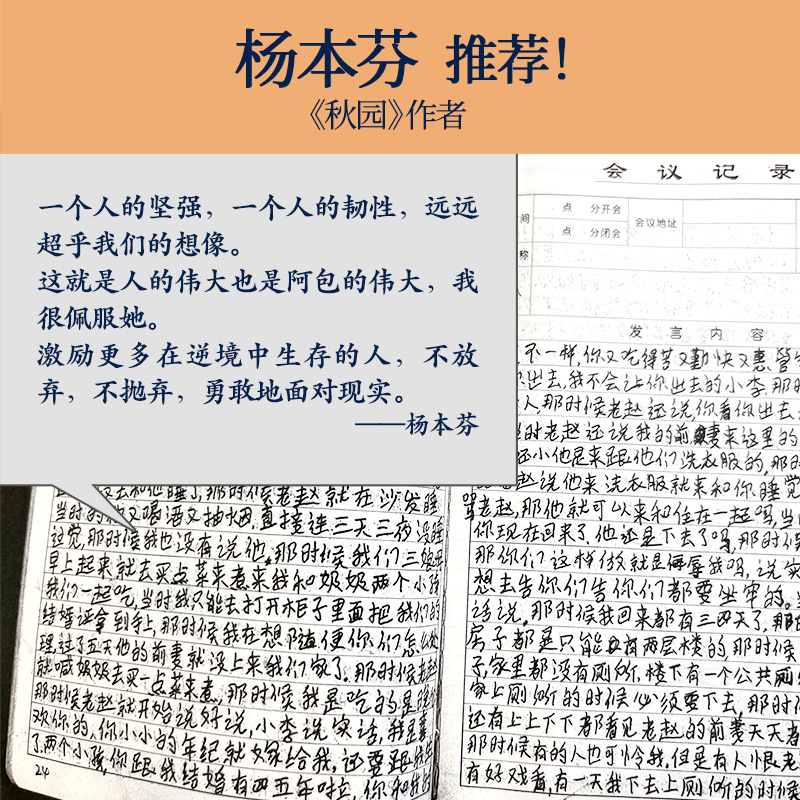 杨本芬 推荐！
《秋园》作者
一个人的坚强，一个人的韧性，远远
超乎我们的想像。
这就是人的伟大也是阿包的伟大，我
很佩服她。
激励更多在逆境中生存的人，不放
弃，不抛弃，勇敢地面对现实。
——杨本芬
会 议 记 录
间 点 分开会 会议地址
点 分闭会
称
人
发 言 内 容
不一样，你又吃得苦又勤快又惠
出去，我不会让你出去的小李，那时
人，那时候老赵还说，你看你出去
当时老赵还说我的前妻来这里的
还小他是来跟他们洗衣服的，那
赵说他来洗衣服就来和你睡觉
骂老赵，那他就可以来和住在一起吗，当
你现在回来了，他还是下去了吗，那时候
那你们这样做就是侮辱我吗，说实
想去告你们告你们都要坐牢的，
话说，那时候我回来都有三四天了，那
房子都是只能有两层楼的那时候
子，家里都没有厕所，楼下有一个公共厕
家上厕所的时候必须要下去，那时
还有上上下下都看见老赵的前妻天天
那时候有的人也可怜我，但是有人恨老
有好戏看，有一天我下去上厕所的时候
去和他睡了，那时候老赵就在沙发睡
当时的他又喝酒又抽烟，直接连三天三夜没睡
过觉，那时候我也没有说他，那时候我们三娘
早上起来就去买点菜来煮来我和奶奶两个小孩
我们一起吃，当时我只能去打开柜子里面把我们的
结婚证拿到手上，那时候我在想随便你们怎么处
理，过了五天他的前妻就没上来我们家了，那时候老赵
就喊奶奶去买一点菜来煮，那时候我是吃的是
那时候老赵就开始说好说，小李说实话，我是喜
欢你的，你小小的年纪就嫁给我，还要跟我
了两个小孩，你跟我结婚有四五年啦，你和我
24